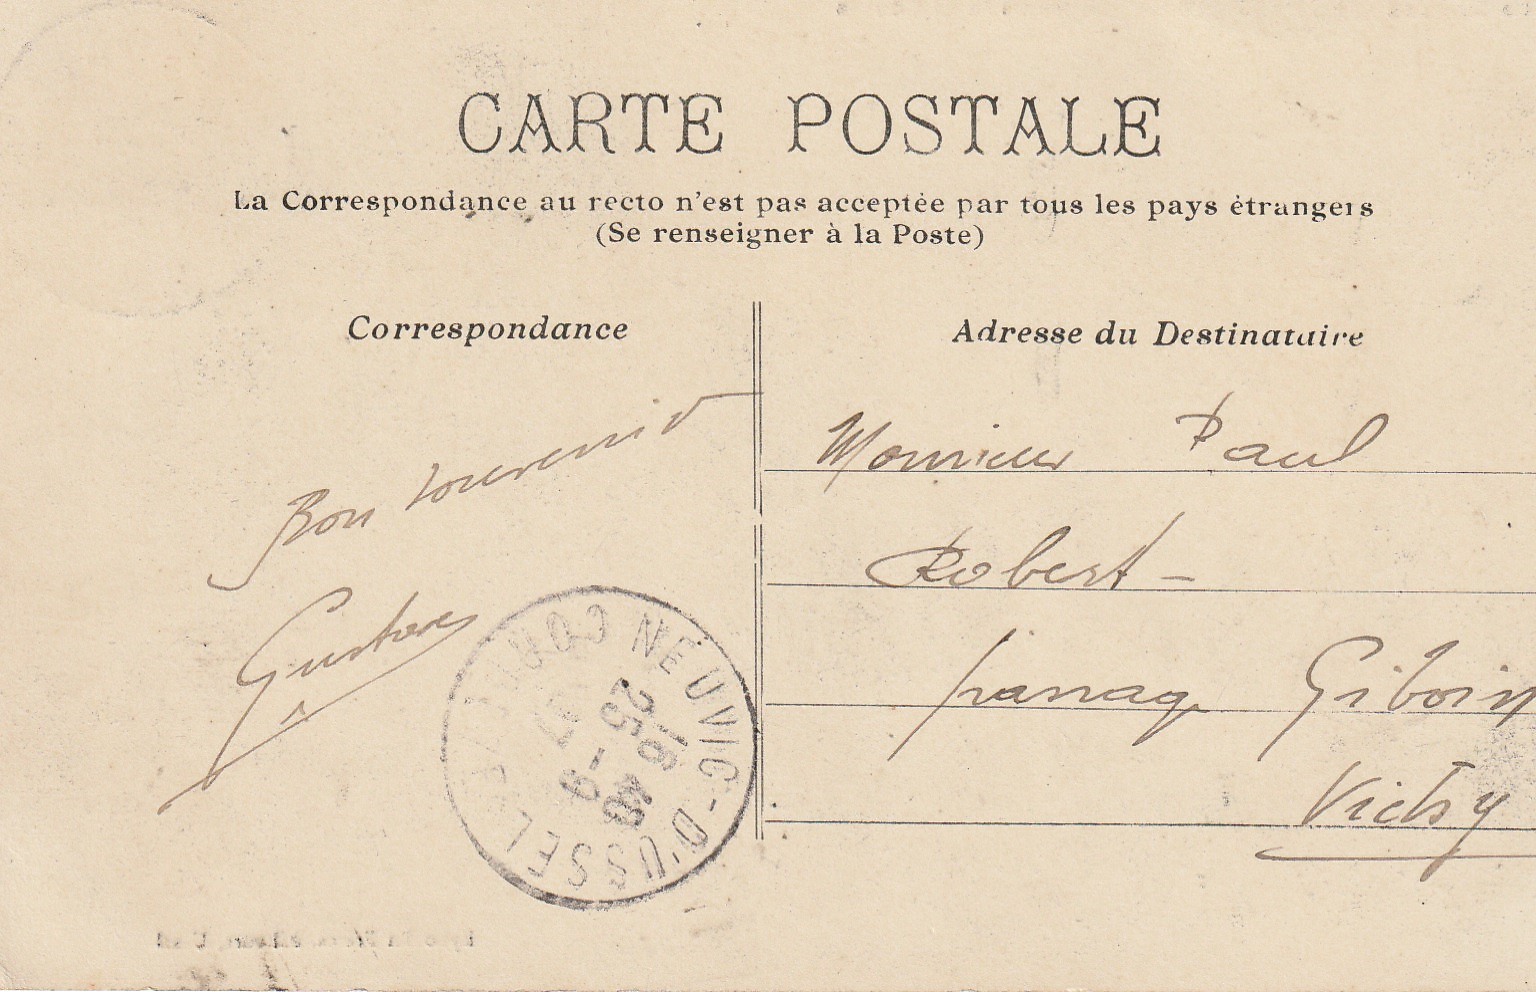 CARTE POSTALE
La Correspondance au recto n'est pas acceptée par tous les pays étrangers
(Se renseigner à la Poste)
Correspondance
Adresse du Destinataire
Bon souvenir
Gustave
Monsieur Paul
Robert -
passage Giboin
Vichy
NEUVIC-D'USSEL
16 40
25 - 9